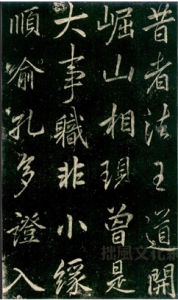 昔者法王道開
崛山相現曾是
大事職非小緣
順喻孔多證入
拙風文化